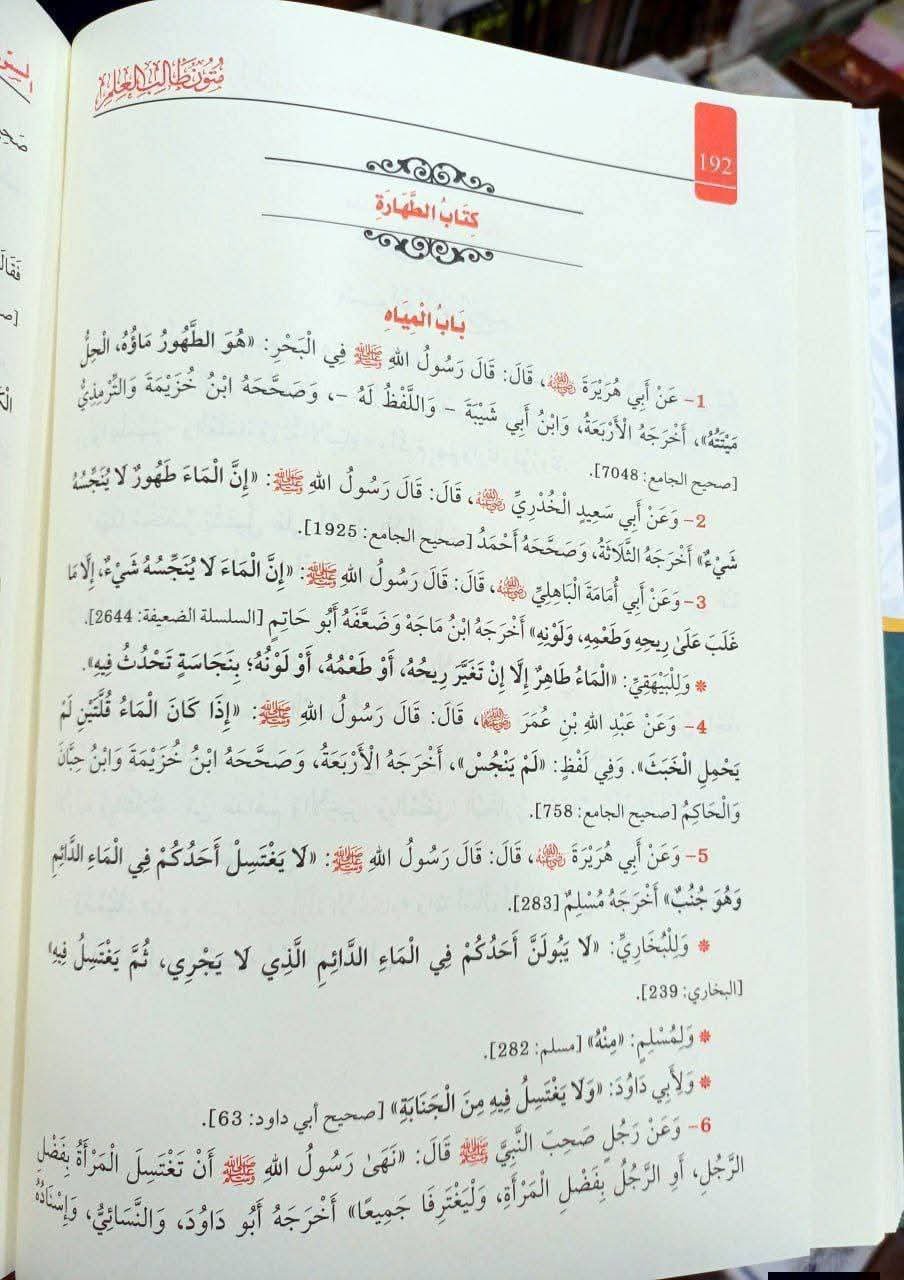 مُتُونُ طَالِبِ الْعِلْمِ
192
كِتَابُ الطَّهَارَةِ
بَابُ الْمِيَاهِ
1- عَنْ أَبِي هُرَيْرَةَ رضي الله عنه، قَالَ: قَالَ رَسُولُ اللهِ ﷺ فِي الْبَحْرِ: «هُوَ الطَّهُورُ مَاؤُهُ، الْحِلُّ
مَيْتَتُهُ»، أَخْرَجَهُ الْأَرْبَعَةُ، وَابْنُ أَبِي شَيْبَةَ - وَاللَّفْظُ لَهُ -، وَصَحَّحَهُ ابْنُ خُزَيْمَةَ وَالتِّرْمِذِيُّ
[صحيح الجامع: 7048].
2- وَعَنْ أَبِي سَعِيدٍ الْخُدْرِيِّ رضي الله عنه، قَالَ: قَالَ رَسُولُ اللهِ ﷺ: «إِنَّ الْمَاءَ طَهُورٌ لَا يُنَجِّسُهُ
شَيْءٌ» أَخْرَجَهُ الثَّلَاثَةُ، وَصَحَّحَهُ أَحْمَدُ [صحيح الجامع: 1925].
3- وَعَنْ أَبِي أُمَامَةَ الْبَاهِلِيِّ رضي الله عنه، قَالَ: قَالَ رَسُولُ اللهِ ﷺ: «إِنَّ الْمَاءَ لَا يُنَجِّسُهُ شَيْءٌ، إِلَّا مَا
غَلَبَ عَلَى رِيحِهِ وَطَعْمِهِ، وَلَوْنِهِ» أَخْرَجَهُ ابْنُ مَاجَهْ وَضَعَّفَهُ أَبُو حَاتِمٍ [السلسلة الضعيفة: 2644].
* وَلِلْبَيْهَقِيِّ: «الْمَاءُ طَاهِرٌ إِلَّا إِنْ تَغَيَّرَ رِيحُهُ، أَوْ طَعْمُهُ، أَوْ لَوْنُهُ؛ بِنَجَاسَةٍ تَحْدُثُ فِيهِ».
4- وَعَنْ عَبْدِ اللهِ بْنِ عُمَرَ رضي الله عنهما، قَالَ: قَالَ رَسُولُ اللهِ ﷺ: «إِذَا كَانَ الْمَاءُ قُلَّتَيْنِ لَمْ
يَحْمِلِ الْخَبَثَ». وَفِي لَفْظٍ: «لَمْ يَنْجُسْ»، أَخْرَجَهُ الْأَرْبَعَةُ، وَصَحَّحَهُ ابْنُ خُزَيْمَةَ وَابْنُ حِبَّانَ
وَالْحَاكِمُ [صحيح الجامع: 758].
5- وَعَنْ أَبِي هُرَيْرَةَ رضي الله عنه، قَالَ: قَالَ رَسُولُ اللهِ ﷺ: «لَا يَغْتَسِلْ أَحَدُكُمْ فِي الْمَاءِ الدَّائِمِ
وَهُوَ جُنُبٌ» أَخْرَجَهُ مُسْلِمٌ [283].
* وَلِلْبُخَارِيِّ: «لَا يَبُولَنَّ أَحَدُكُمْ فِي الْمَاءِ الدَّائِمِ الَّذِي لَا يَجْرِي، ثُمَّ يَغْتَسِلُ فِيهِ»
[البخاري: 239].
* وَلِمُسْلِمٍ: «مِنْهُ» [مسلم: 282].
* وَلِأَبِي دَاوُدَ: «وَلَا يَغْتَسِلُ فِيهِ مِنَ الْجَنَابَةِ» [صحيح أبي داود: 63].
6- وَعَنْ رَجُلٍ صَحِبَ النَّبِيَّ ﷺ قَالَ: «نَهَى رَسُولُ اللهِ ﷺ أَنْ تَغْتَسِلَ الْمَرْأَةُ بِفَضْلِ
الرَّجُلِ، أَوِ الرَّجُلُ بِفَضْلِ الْمَرْأَةِ، وَلْيَغْتَرِفَا جَمِيعًا» أَخْرَجَهُ أَبُو دَاوُدَ، وَالنَّسَائِيُّ، وَإِسْنَادُهُ